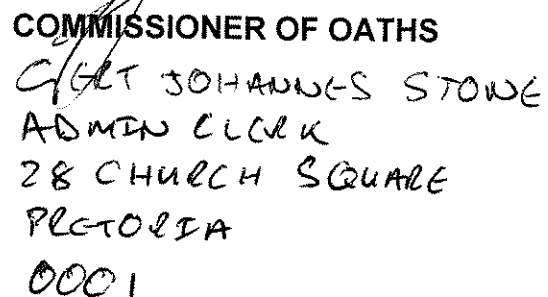 COMMISSIONER OF OATHS
GERT JOHANNES STONE
ADMIN CLERK
28 CHURCH SQUARE
PRETORIA
0001